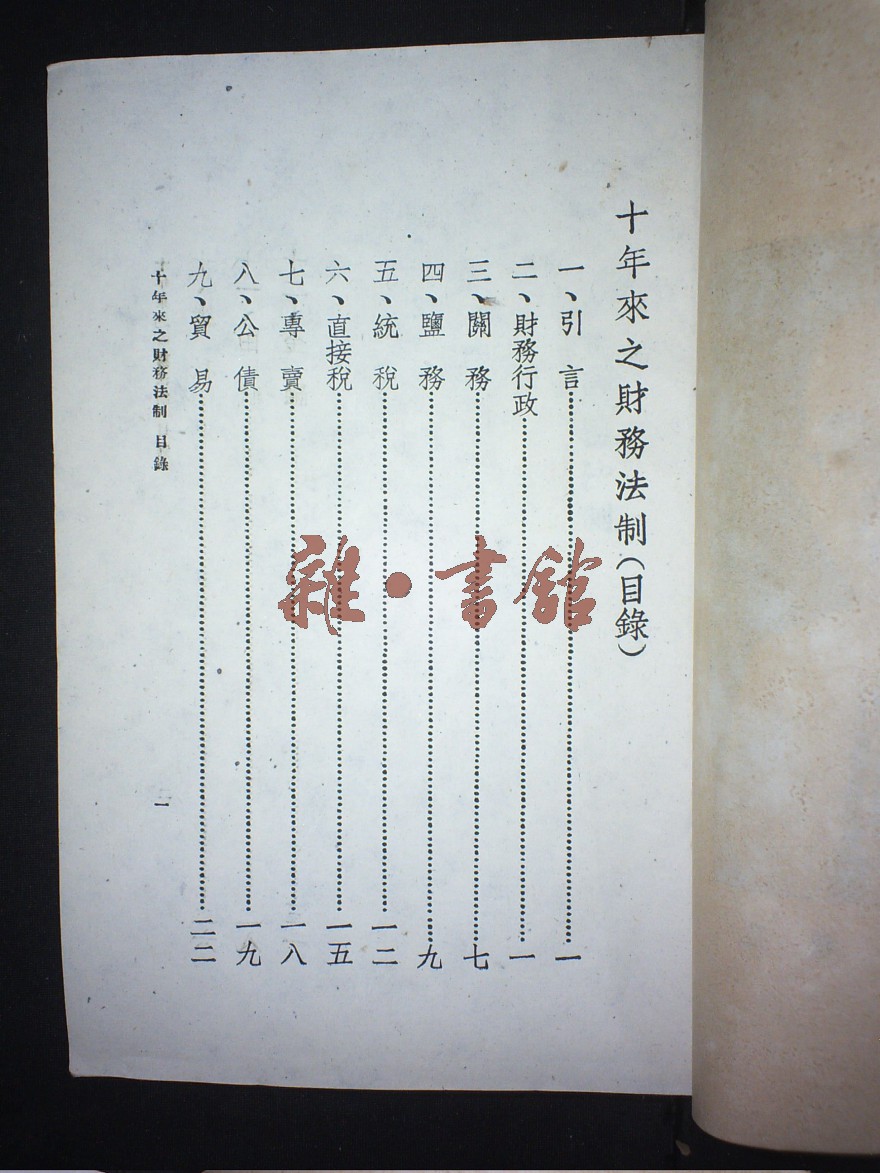 十年來之財務法制(目錄)
一、引言…………一
二、財務行政…………一
三、關務…………七
四、鹽務…………九
五、統稅…………一二
六、直接稅…………一五
七、專賣…………一八
八、公債…………一九
九、貿易…………二二
十年來之財務法制 目錄 一
雜·書館